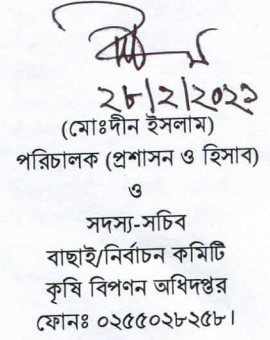 ২৮/২/২০২১
(মোঃদীন ইসলাম)
পরিচালক (প্রশাসন ও হিসাব)
ও
সদস্য-সচিব
বাছাই/নির্বাচন কমিটি
কৃষি বিপণন অধিদপ্তর
ফোনঃ ০২৫৫০২৮২৫৮।